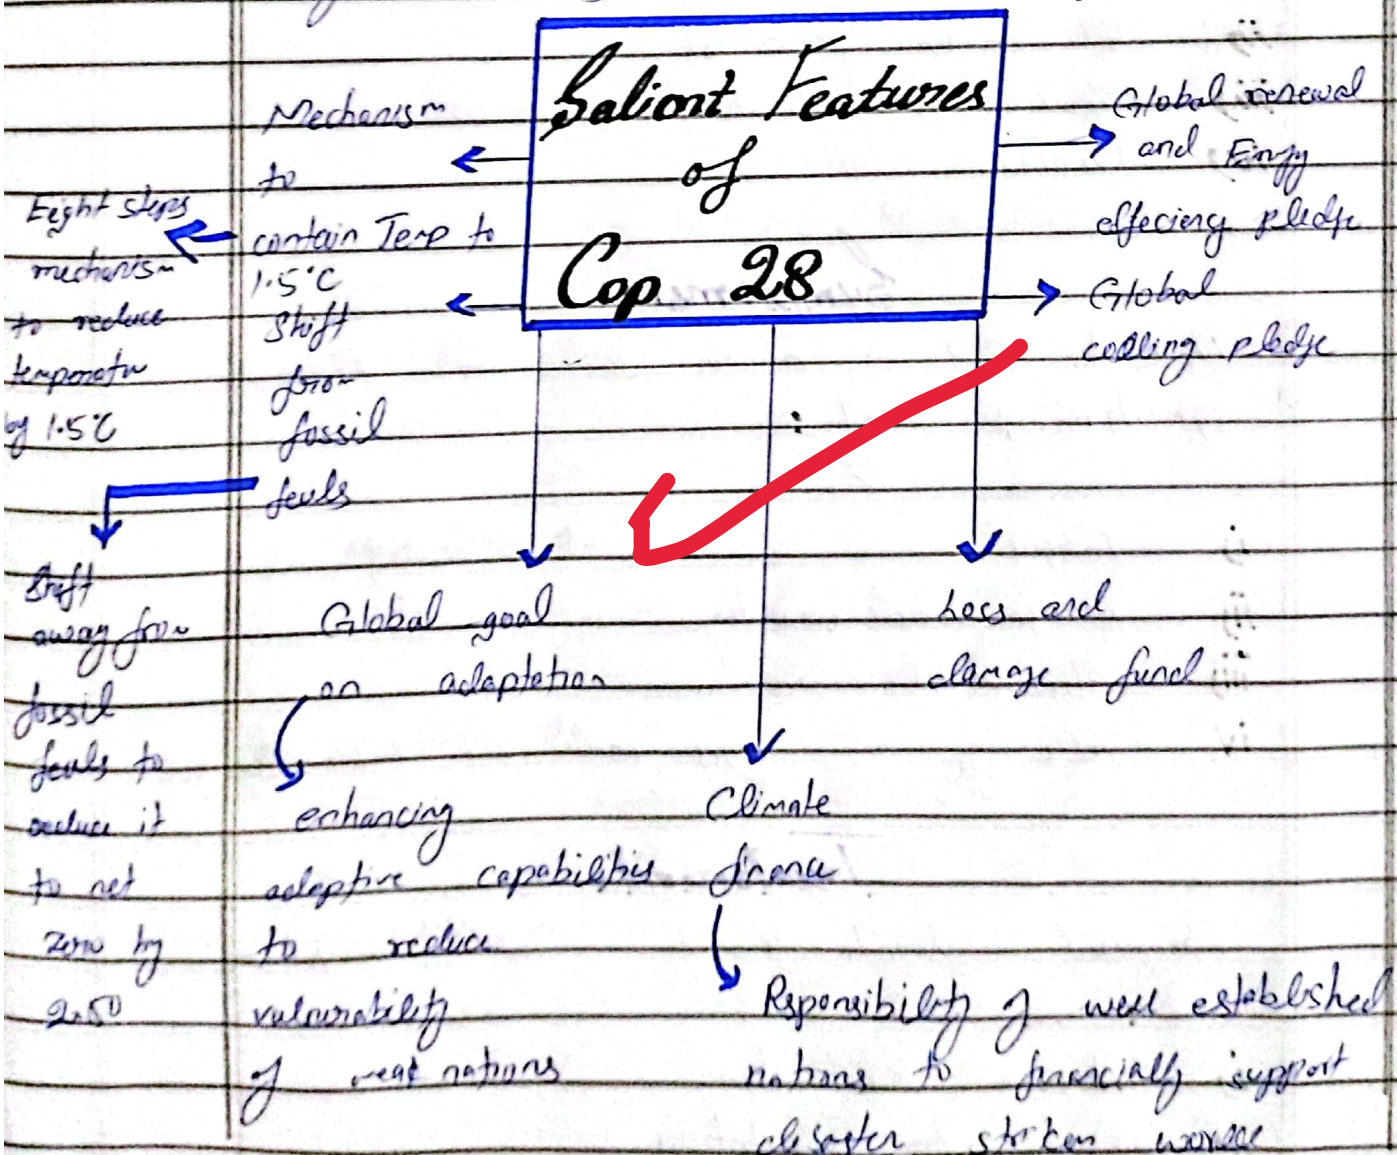 Salient Features
of
Cop 28
Mechanism
to
contain Temp to
1.5°C
Eight steps
mechanism
to reduce
temperatu
by 1.5°C
Shift
from
fossil
feuls
Shift
away from
fossil
feuls to
reduce it
to net
zero by
2.50
Global renewal
and Energy
effeciency pledge
Global
cooling pledge
Global goal
on adaptation
enhancing
adaptive capabilities
to reduce
vulnerability
of weak nations
Climate
finance
Rsponsibility of well established
nations to financially support
disaster striken
Loss and
damage fund